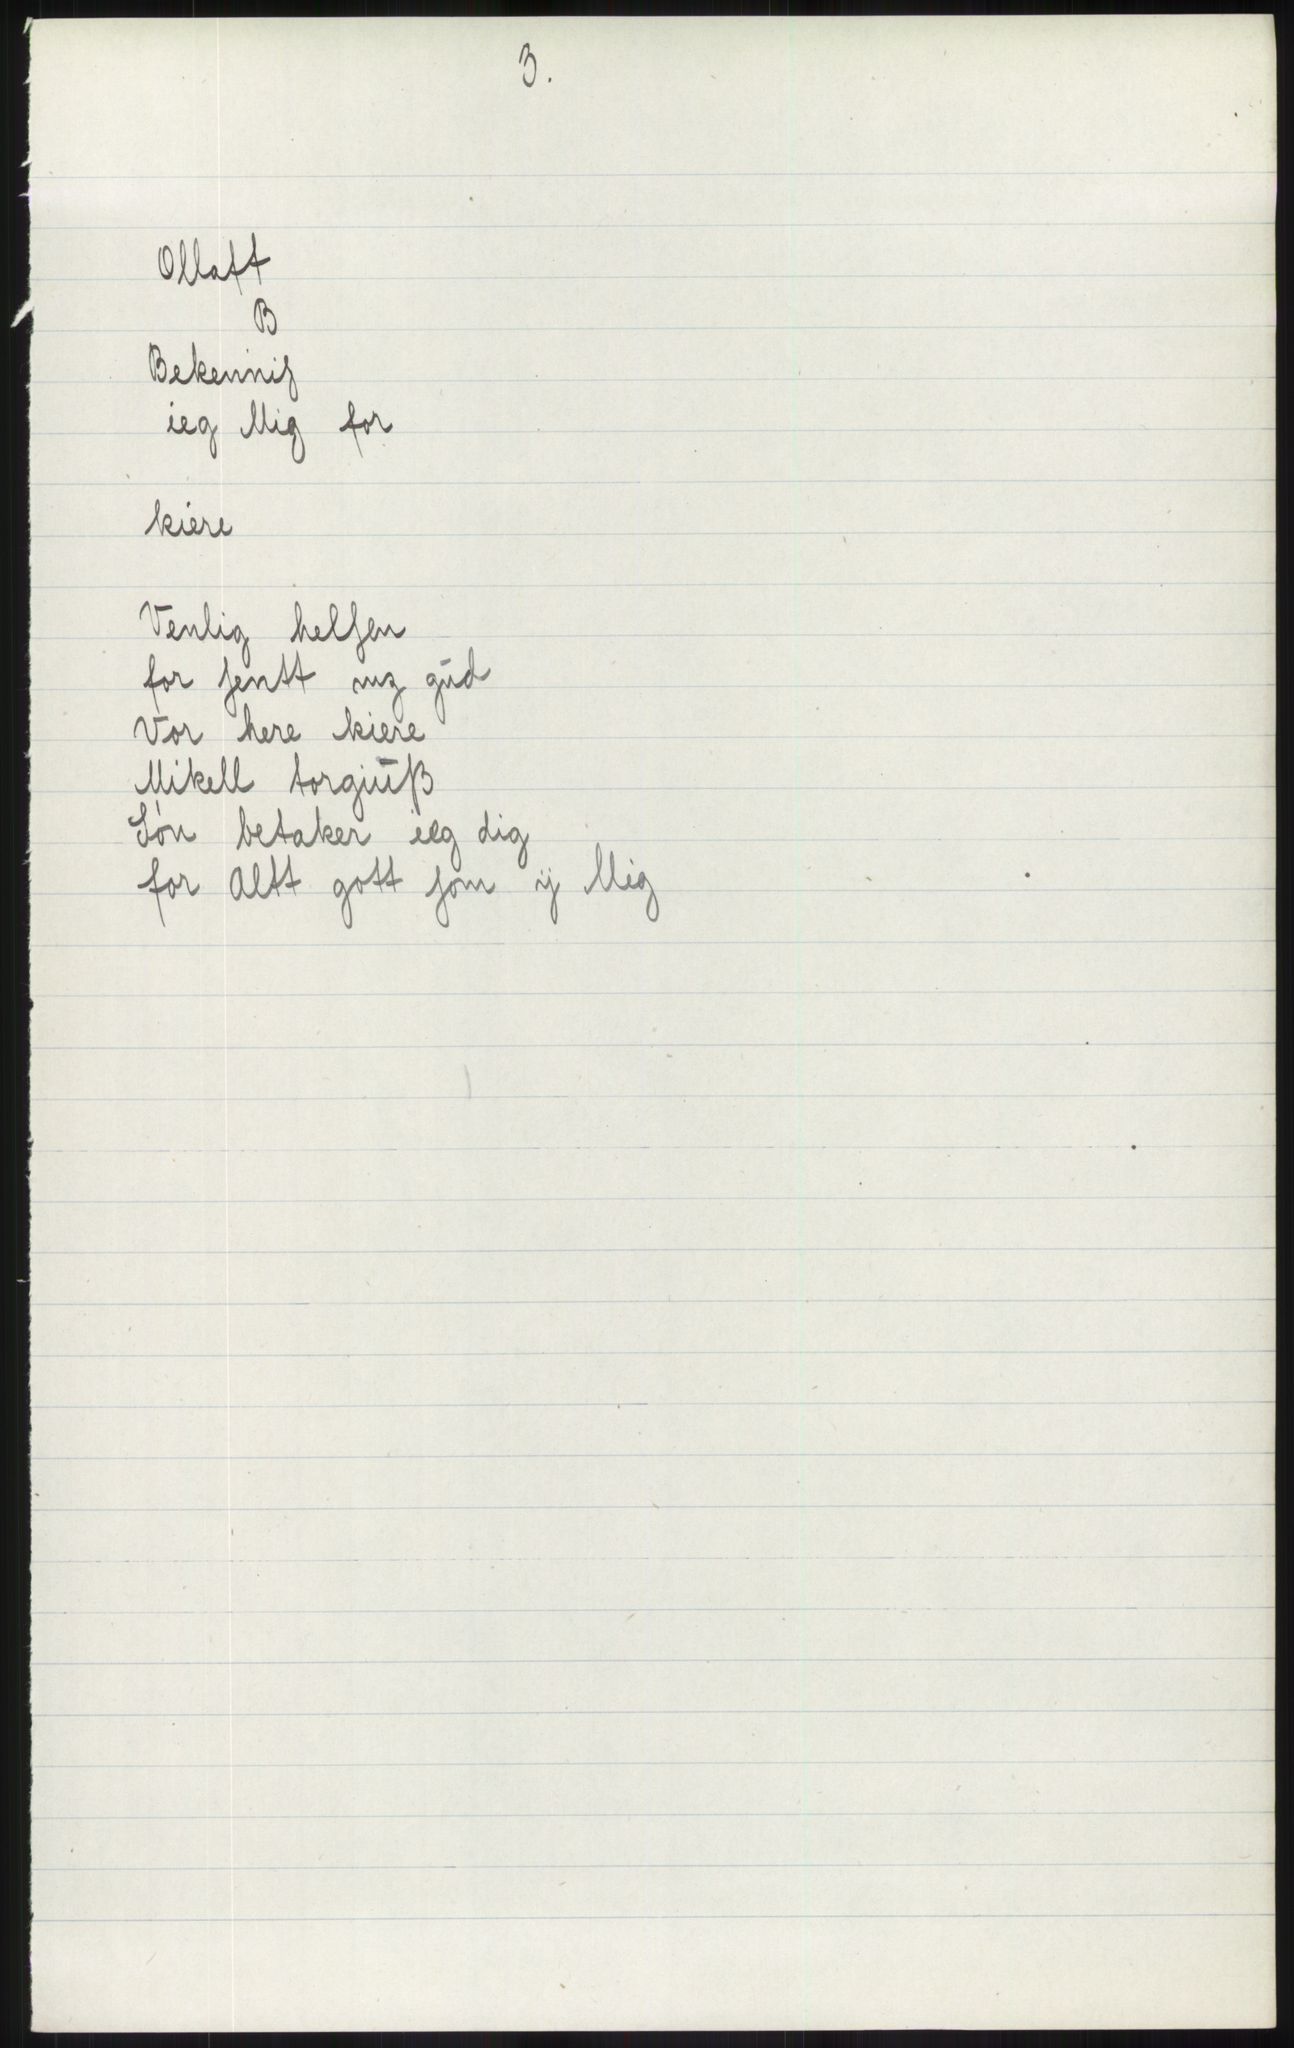 3.
Ollaff
B
Bekennis
ieg Mig for
kiere
Venlig helsen
for sentt mz gud
Vor here kiere
Mikell torgiuß
Søn betaker ieg dig
for Altt gott som ij Mig